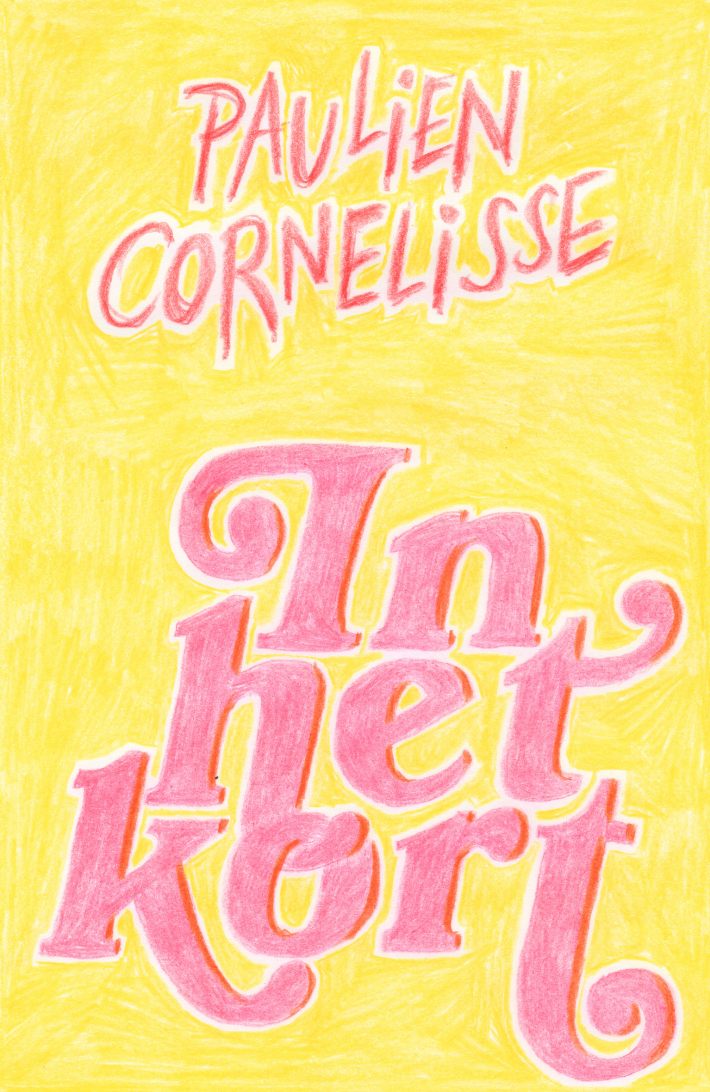 PAULIEN
CORNELISSE
In
het
kort